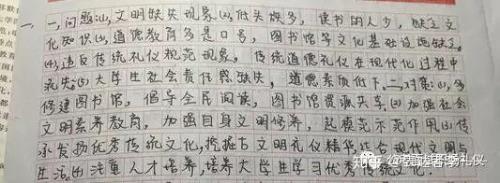 一、问题:(1)文明缺失现象(2)低头族多,读书的人少,缺乏文
化知识(3)道德教育多是口号,图书馆等文化基础设施缺乏
(4)违反传统礼仪规范现象,传统道德礼仪在现代化过程中
流失(5)大学生社会责任感缺失,道德素质低下。二、对策:(1)多
修建图书馆,倡导全民阅读,图书馆资源共享(2)加强社会
文明素养教育,加强自身文明修养,起模范示范作用(3)传
承发扬优秀传统文化,挖掘古文明礼仪精华,结合现代文明与
生活(4)注重人才培养,培养大学生学习优秀传统文化.